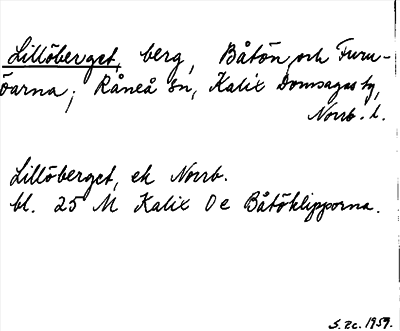 Lillöberget, berg, Båtön och Furu-
öarna; Råneå sn, Kalix Domsagas tg,
Norrb. l.
Lillöberget, ek Norrb.
bl. 25 M Kalix Oe Båtöklipporna.
S. Zc. 1959.